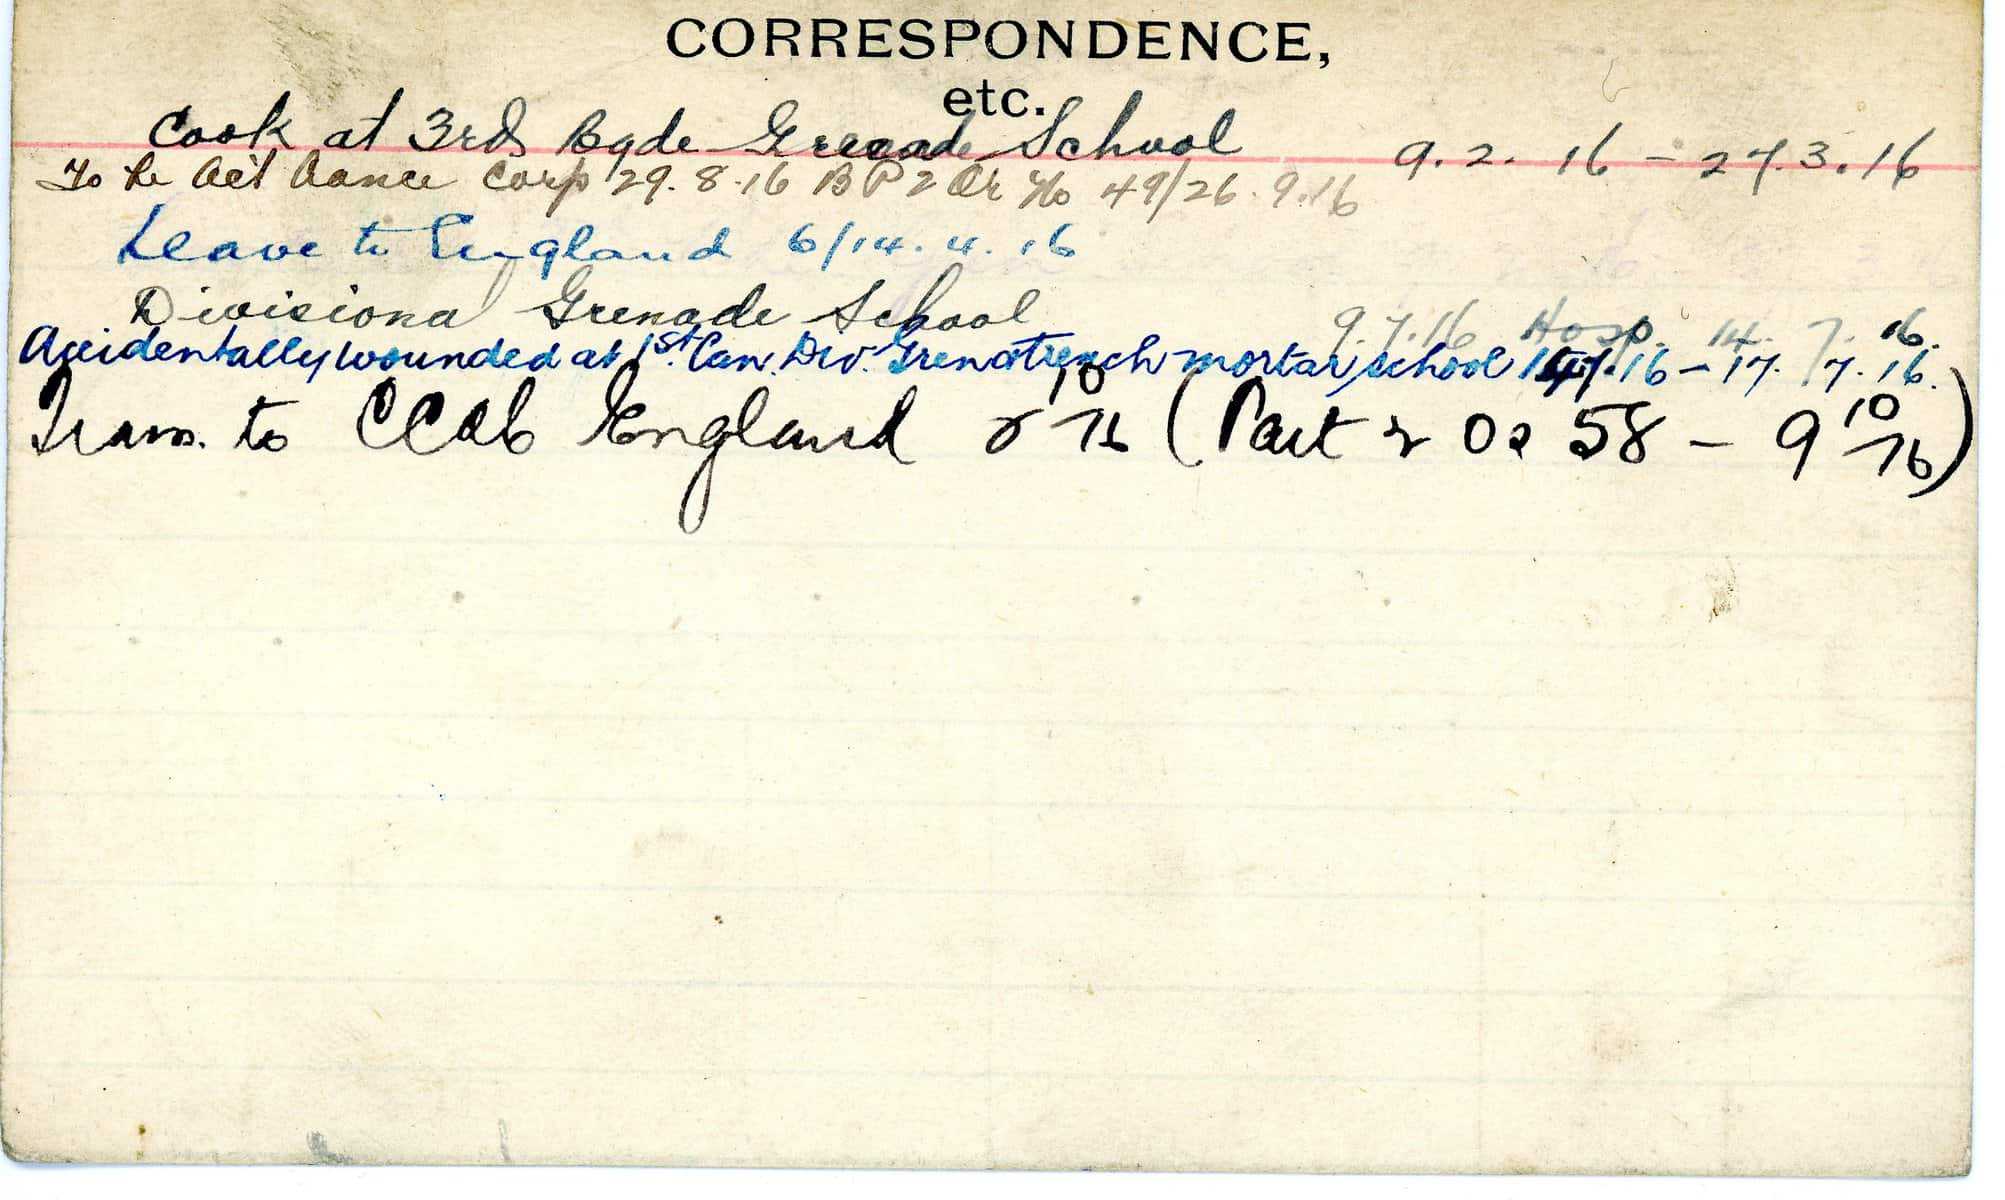 CORRESPONDENCE,
etc.
Cook at 3rd Bgde Grenade School 9.2.16 - 27.3.16
To be Act Lance Corp 29.8.16 B P 2 Or No 49/26.9.16
Leave to England 6/14.4.16
Divisional Grenade School 9.7.16 Hosp. 14.7.16.
Accidentally wounded at 1st Can. Div. Gren & trench mortar school 14.7.16 - 17.7.16.
Trans. to England 10/16 (Part 2 Oo 58 - 9 10/16)